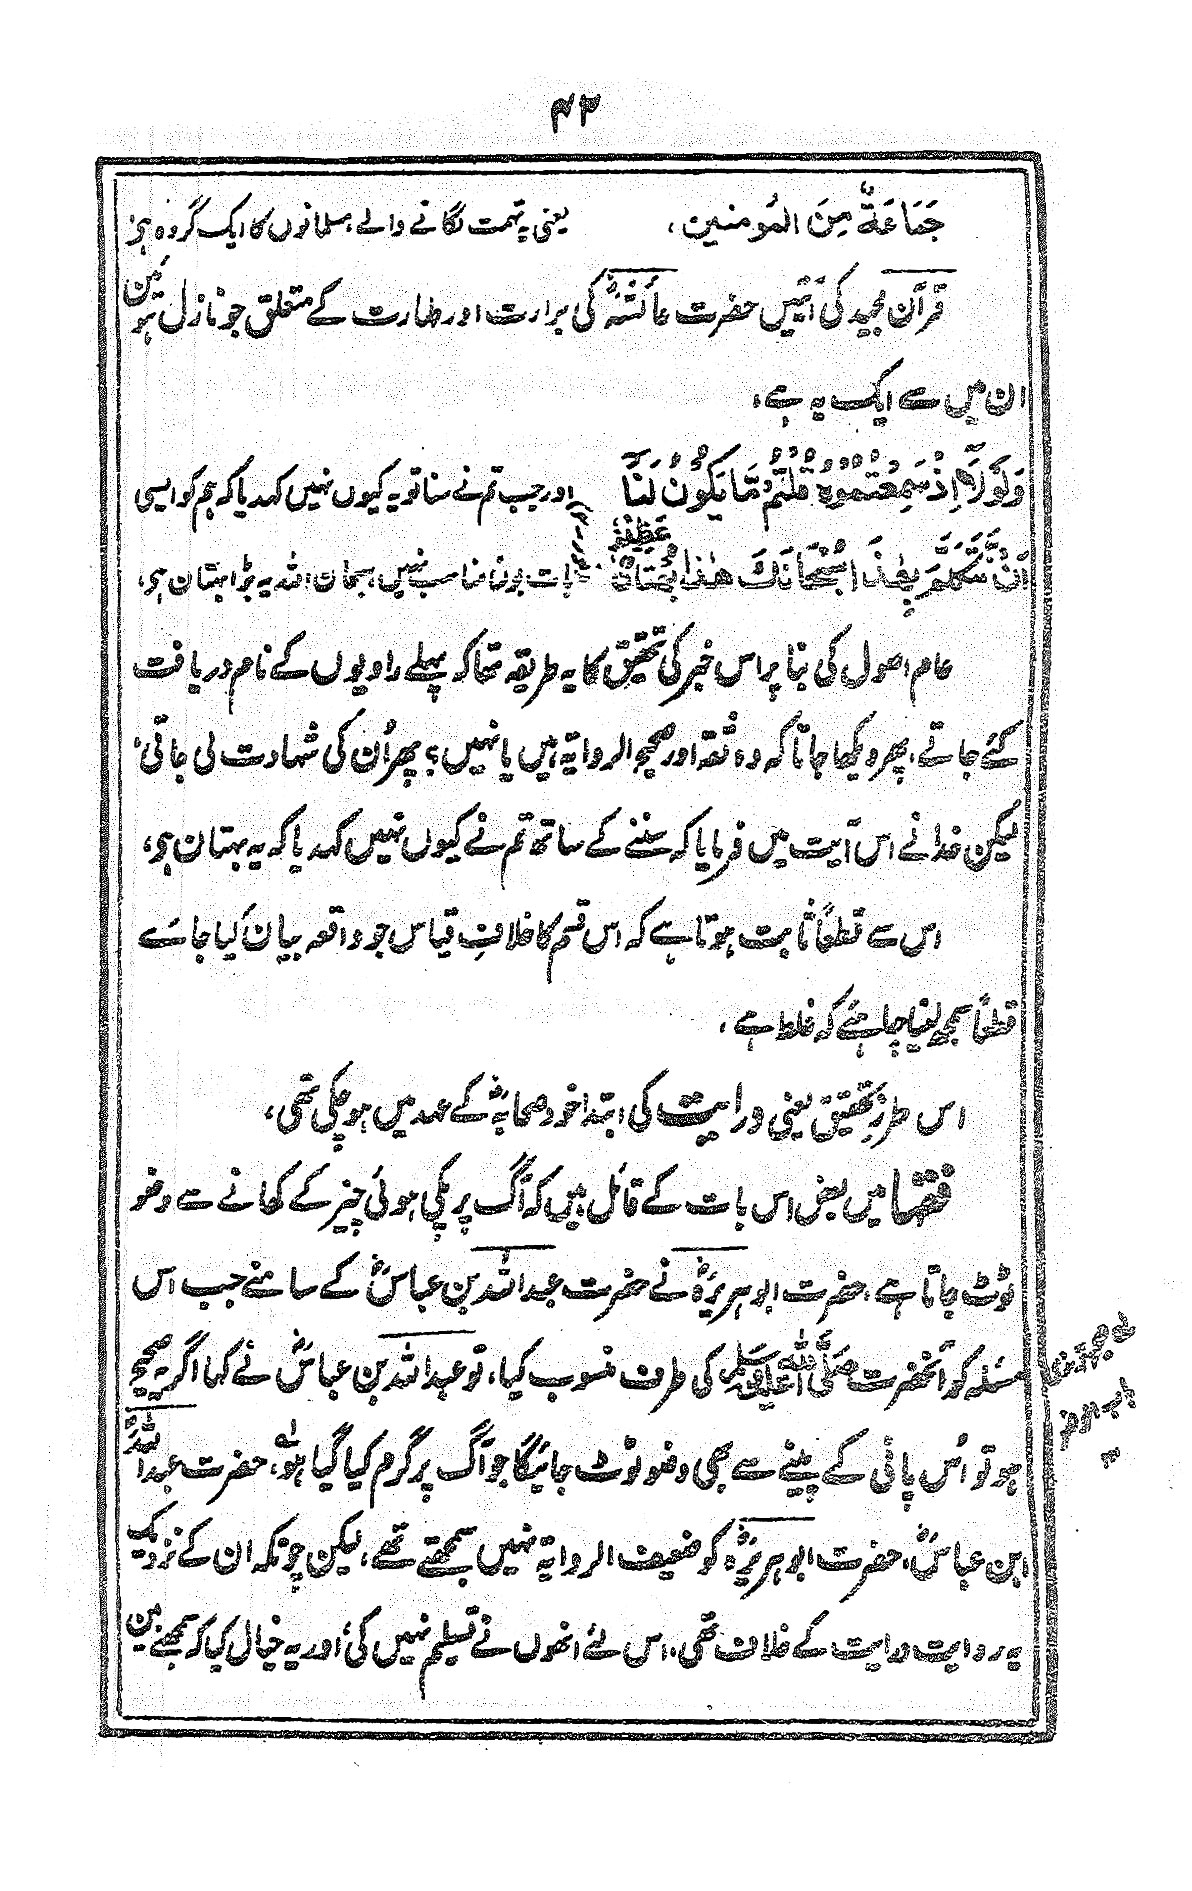 ۴۳
جَمَاعَةٌ مِنَ المُومنین، یعنی یہ تہمت لگانے والے مسلمانوں کا ایک گروہ ہو
قرآن مجید کی آیتیں حضرت عائشہؓ کی برارت اور طہارت کے متعلق جو نازل ہوئین
ان میں سے ایک یہ ہے،
وَلَوْلَا اِذْ سَمِعْتُمُوْهُ قُلْتُمْ مَّا يَكُوْنُ لَنَا اور جب تم نے سنا تو یہ کیوں نہیں کہدیا کہ ہم کو ایسی
اَنْ نَّتَكَلَّمَ بِهٰذَا سُبْحَانَكَ هٰذَا بُهْتَانٌ عَظِيْمٌ بات بولنا مناسب نہیں، سبحان اللہ یہ بڑا بہتان ہو،
عام اصول کی بنا پر اس خبر کی تحقیق کا یہ طریقہ تھا کہ پہلے راویوں کے نام دریافت
کئے جاتے، پھر دیکھا جاتا کہ وہ ثقہ اور صحیح الروایۃ ہیں یا نہیں؟ پھر اُن کی شہادت لی جاتی،
لیکن خدا نے اس آیت میں فرمایا کہ سننے کے ساتھ تم نے کیوں نہیں کہدیا کہ یہ بہتان ہو،
اس سے قطعاً ثابت ہوتا ہے کہ اس قسم کا خلافِ قیاس جو واقعہ بیان کیا جائے
قطعاً سمجھ لینا چاہئے کہ غلط ہے،
اس طرزِ تحقیق یعنی درایت کی ابتدا خود صحابہؓ کے عہد میں ہو چکی تھی،
فقہا میں بعض اس بات کے قائل ہیں کہ آگ پر پکی ہوئی چیز کے کھانے سے وضو
ٹوٹ جاتا ہے، حضرت ابوہریرہؓ نے حضرت عبداللہ بن عباسؓ کے سامنے جب اس
مسئلہ کو آنحضرت صَلَّی اللہُ عَلَیہِ وَسَلَّم کی طرف منسوب کیا، تو عبداللہ بن عباسؓ نے کہا اگر یہ صحیح
ہو تو اُس پانی کے پینے سے بھی وضو ٹوٹ جائیگا جو آگ پر گرم کیا گیا ہو، حضرت عبداللہ
ابن عباسؓ، حضرت ابوہریرہؓ کو ضعیف الروایۃ نہیں سمجھتے تھے، لیکن چونکہ ان کے نزدیک
یہ روایت درایت کے خلاف تھی، اس لئے انھوں نے تسلیم نہیں کی اور یہ خیال کیا کہ سمجھنے مین